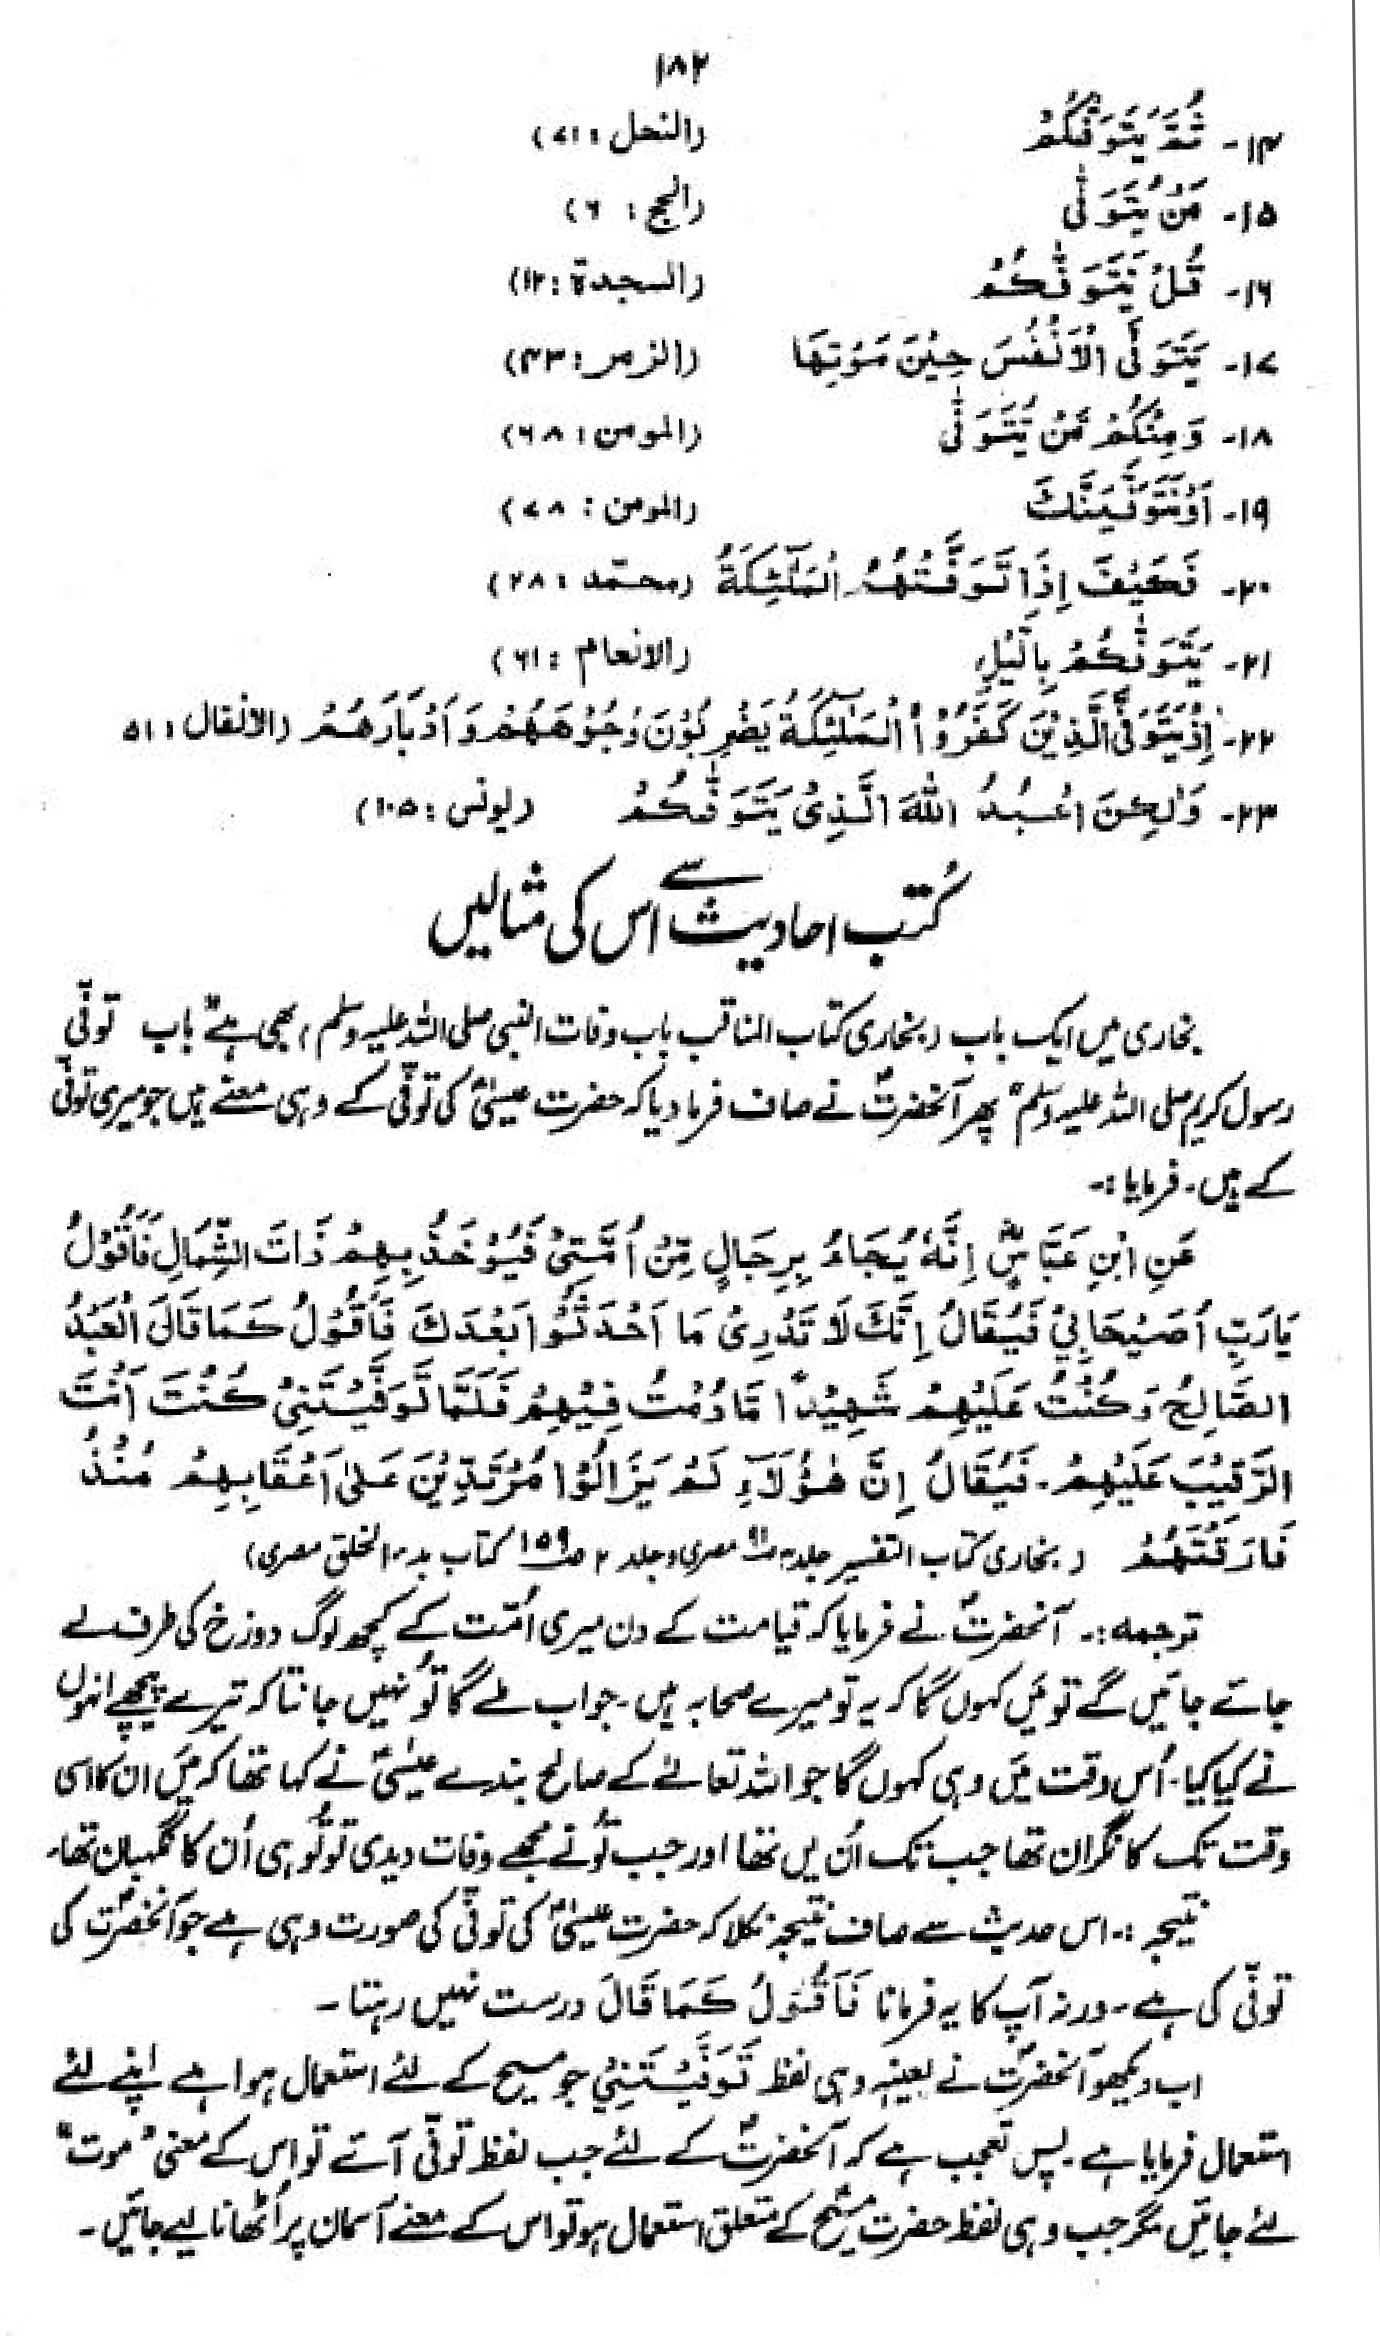 ۱۸۲
۱۴۔ ثُمَّ يَتَوَفّٰكُمْ (النحل : ۷۱)
۱۵۔ مَنْ يُّتَوَفّٰى (الحج : ۶)
۱۶۔ قُلْ يَتَوَفّٰكُمْ (السجدة : ۱۲)
۱۷۔ يَتَوَفَّى الْاَنْفُسَ حِيْنَ مَوْتِهَا (الزمر : ۴۳)
۱۸۔ وَمِنْكُمْ مَّنْ يُّتَوَفّٰى (المومن : ۶۸)
۱۹۔ اَوْ نَتَوَفَّيَنَّكَ (المومن : ۷۸)
۲۰۔ فَكَيْفَ اِذَا تَوَفَّتْهُمُ الْمَلٰٓئِكَةُ (محمّد : ۲۸)
۲۱۔ يَتَوَفّٰكُمْ بِالَّيْلِ (الانعام : ۶۱)
۲۲۔ اِذْ يَتَوَفَّى الَّذِيْنَ كَفَرُوْا الْمَلٰٓئِكَةُ يَضْرِبُوْنَ وُجُوْهَهُمْ وَاَدْبَارَهُمْ (الانفال : ۵۱
۲۳۔ وَلٰكِنْ اَعْبُدُ اللّٰهَ الَّذِىْ يَتَوَفّٰكُمْ (یونس : ۱۰۵)
کُتب احادیث سے اس کی مثالیں
بخاری میں ایک باب (بخاری کتاب المناقب باب وفات النبی صلی اللہ علیہ وسلم) بھی ہے "باب توفّی
رسول کریم صلی اللہ علیہ وسلم" پھر آنحضرتؐ نے صاف فرما دیا کہ حضرت عیسیٰؑ کی توفّی کے وہی معنے ہیں جو میری توفّی
کے ہیں۔ فرمایا :۔
عَنِ ابْنِ عَبَّاسٍؓ اِنَّهٗ يُجَاءُ بِرِجَالٍ مِّنْ اُمَّتِىْ فَيُؤْخَذُ بِهِمْ ذَاتَ الشِّمَالِ فَاَقُوْلُ
يَارَبِّ اُصَيْحَابِىْ فَيُقَالُ اِنَّكَ لَا تَدْرِىْ مَا اَحْدَثُوْا بَعْدَكَ فَاَقُوْلُ كَمَا قَالَ الْعَبْدُ
الصَّالِحُ وَكُنْتُ عَلَيْهِمْ شَهِيْدًا مَّا دُمْتُ فِيْهِمْ فَلَمَّا تَوَفَّيْتَنِىْ كُنْتَ اَنْتَ
الرَّقِيْبَ عَلَيْهِمْ۔ فَيُقَالُ اِنَّ هٰؤُلَآءِ لَمْ يَزَالُوْا مُرْتَدِّيْنَ عَلٰى اَعْقَابِهِمْ مُنْذُ
فَارَقْتَهُمْ (بخاری کتاب التفسیر جلد ۳ ص۹۱ مصری و جلد ۲ ص۱۵۹ کتاب بدء الخلق مصری)
ترجمہ :۔ آنحضرتؐ نے فرمایا کہ قیامت کے دن میری اُمّت کے کچھ لوگ دوزخ کی طرف لے
جائے جائیں گے تو مَیں کہوں گا کہ یہ تو میرے صحابہ ہیں۔ جواب ملے گا تُو نہیں جانتا کہ تیرے پیچھے انہوں
نے کیا کیا۔ اُس وقت مَیں وہی کہوں گا جو اللہ تعالیٰ کے صالح بندے عیسیٰؑ نے کہا تھا کہ مَیں ان کا اسی
وقت تک کا نگران تھا جب تک اُن میں تھا اور جب تُو نے مجھے وفات دیدی تو تُو ہی اُن کا نگہبان تھا۔
نتیجہ :۔ اس حدیث سے صاف نتیجہ نکلا کہ حضرت عیسیٰؑ کی توفّی کی صورت وہی ہے جو آنحضرتؐ کی
توفّی کی ہے۔ ورنہ آپ کا یہ فرمانا فَاَقُوْلُ كَمَا قَالَ درست نہیں رہتا۔
اب دیکھو آنحضرتؐ نے بعینہٖ وہی لفظ تَوَفَّيْتَنِىْ جو مسیح کے لئے استعمال ہوا ہے اپنے لئے
استعمال فرمایا ہے۔ پس تعجب ہے کہ آنحضرتؐ کے لئے جب لفظ توفّی آئے تو اس کے معنی "موت"
لئے جائیں مگر جب وہی لفظ حضرت مسیحؑ کے متعلق استعمال ہو تو اس کے معنے آسمان پر اُٹھانا لیے جائیں۔